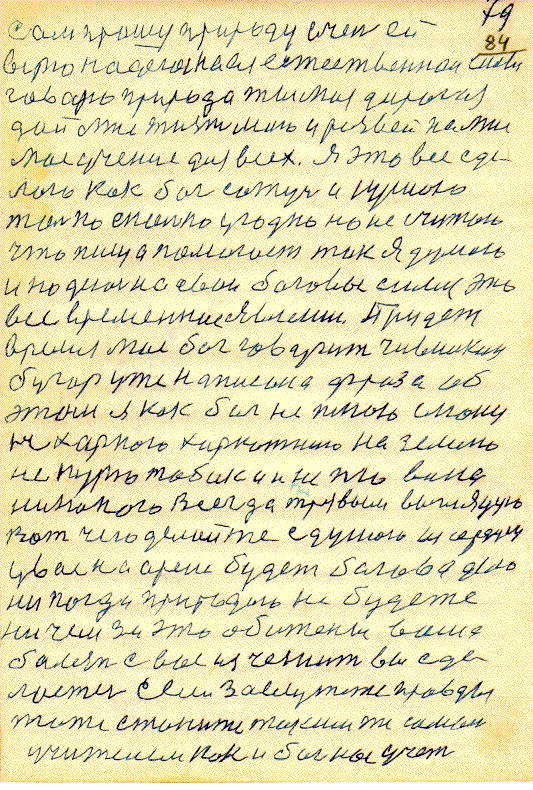 79
84
Сам прошу природу счеп ей
верю надеюся на естественной силы
говарю природа ты моя дорогая
дай мне жизнь мою и развей на мне
мое учение для всех. Я это все сде
лою как бог сам и кушою
толко сколко угодно но не считою
что пища помогает так я думою
и надеюсь на свои боговы силы это
все временные явлении. Придет
время мое бог говарит чивилкин
бугор уже написана фраза об
этом я как бог не плюю
и не харкою харкотиною на землю
не курю табака и не пью вина
никокого всегда трезвым выгляжую
вот чего делайте с душою и сердцем
у вас на арене будет богова дело
никогда природою не будете
ни чем за это обижены ваша
балезн с вас исчезнит вы сде
лаетес если заслужите правды
тоже станите такими же самыми
учителем как и бог нас учет